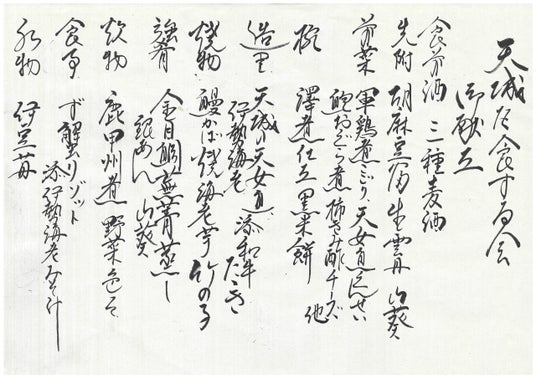 天城を食する会
御献立
食前酒 三種麦酒
先附 胡麻豆腐 生雲丹 山葵
前菜 軍鶏煮こごり 天女魚くんせい
鮑おくら煮 柿なます酢チーズ 他
椀 沢煮仕立 黒米餅
造里 天城の天女魚 添和牛たたき
伊勢海老
焼物 鰻かば焼 海老芋 竹の子
強肴 金目鯛蕪菁蒸し
銀あん 山葵
炊物 鹿甲州煮 野菜色々
食事 ず蟹リゾット
添伊勢海老みそ汁
水物 伊豆苺